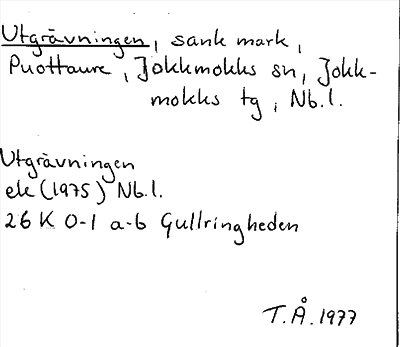 Utgrävningen, sank mark,
Puottaure, Jokkmokks sn, Jokk-
mokks tg, Nb.l.
Utgrävningen
ek (1975) Nb.l.
26 K 0-1 a-b Gullringheden
T.Å. 1977